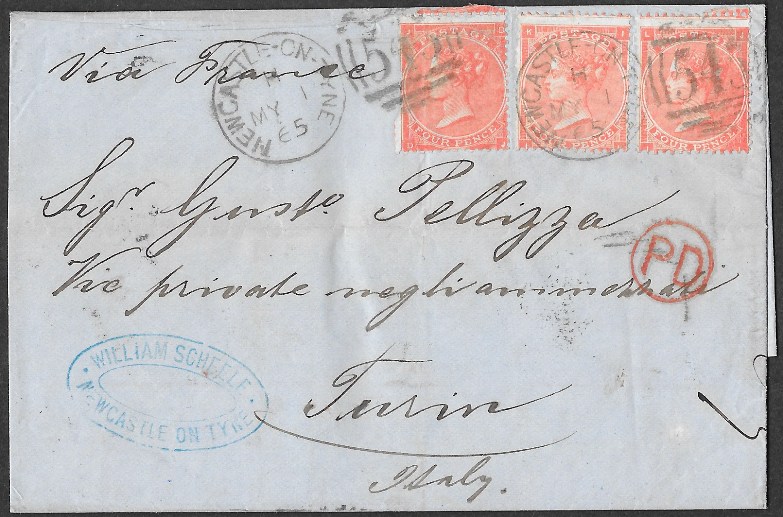 Via France
NEWCASTLE-ON-TYNE
H
MY 1
65
54
POSTAGE
FOUR PENCE
NEWCASTLE-ON-TYNE
H
MY 1
65
POSTAGE
FOUR PENCE
545
POSTAGE
FOUR PENCE
Sigr Gusto Pellizza
PD
Vie private
Turin
Italy.
WILLIAM SCHEELE
NEWCASTLE ON TYNE